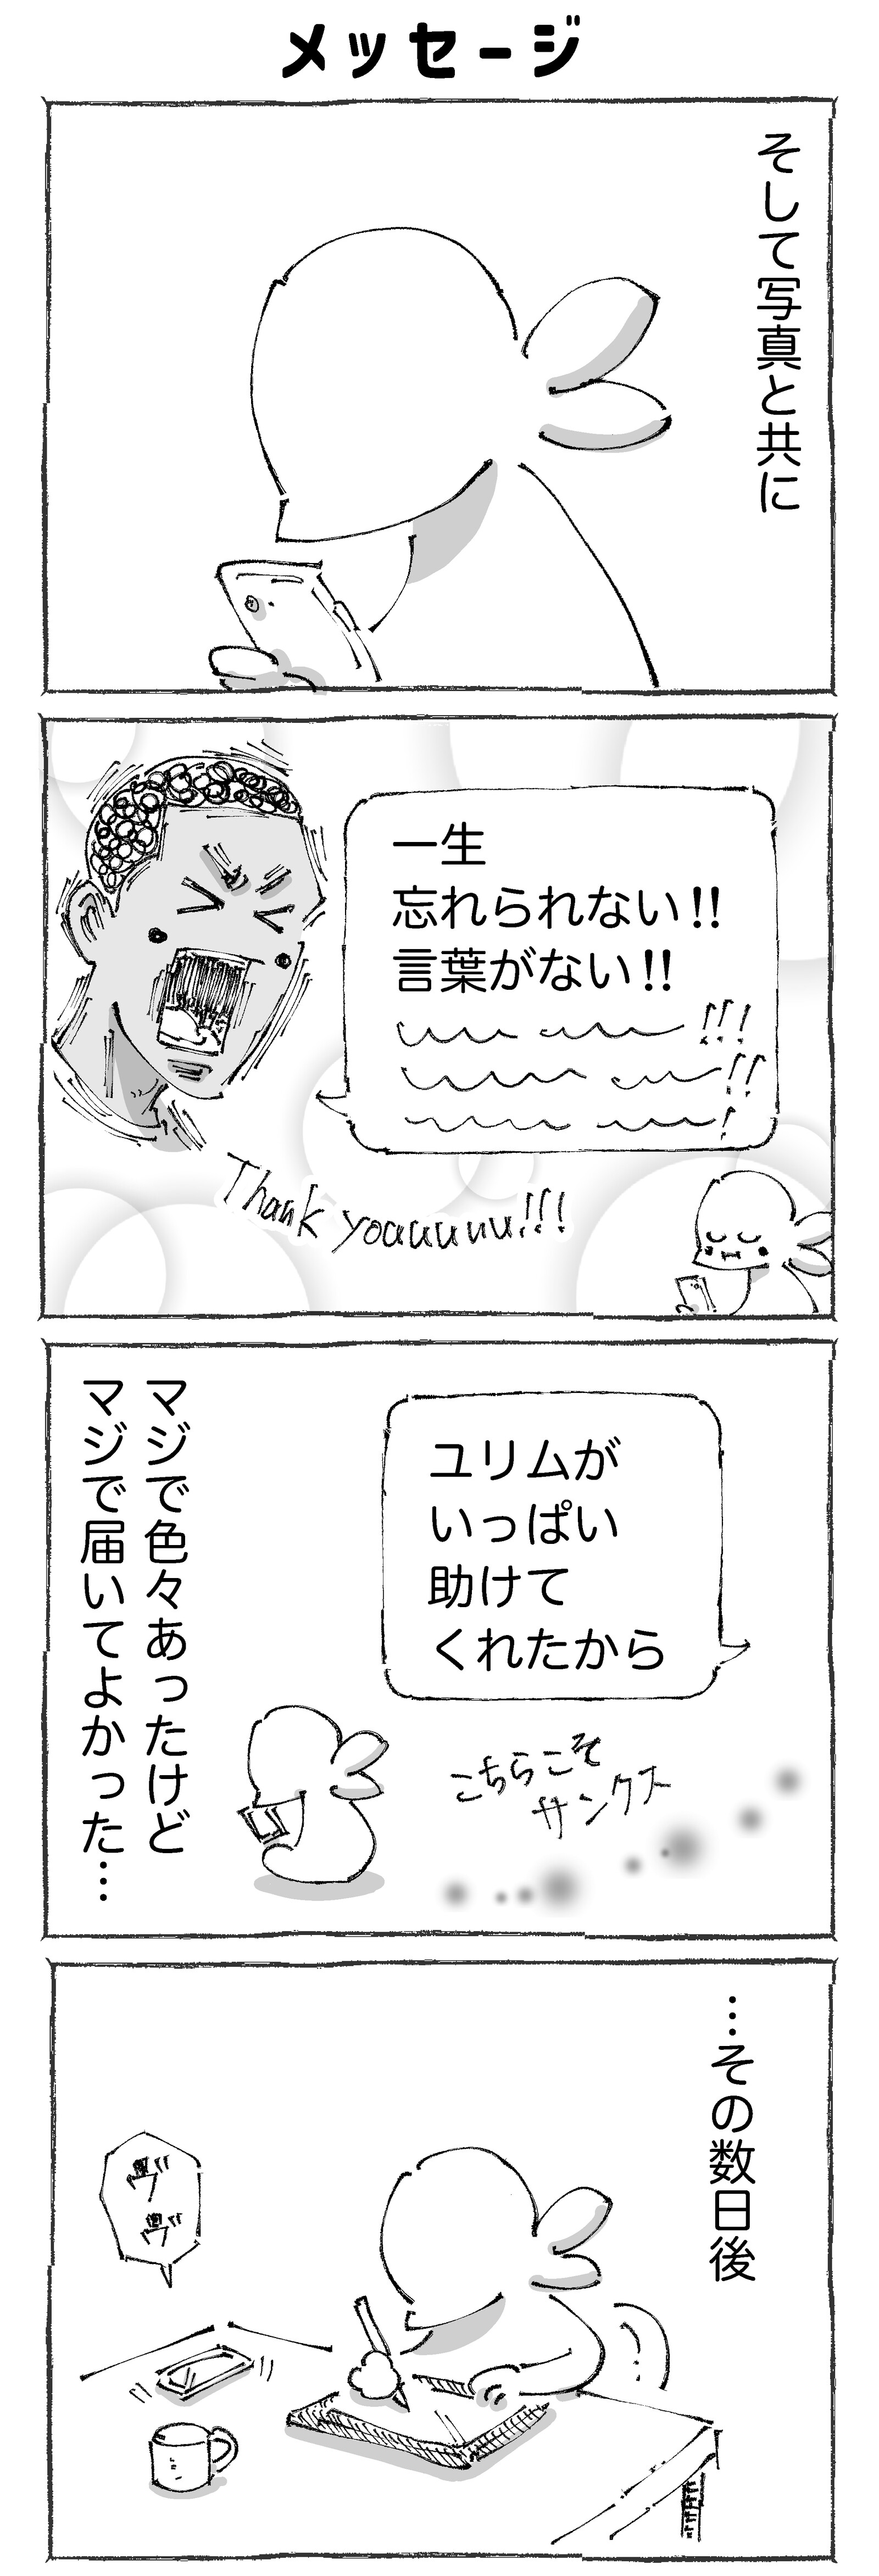 メッセージ
そして写真と共に
一生
忘れられない!!
言葉がない!!
!!!
!!
!
Thank youuuuuu!!!
ユリムが
いっぱい
助けて
くれたから
こちらこそ
サンクス
マジで色々あったけど
マジで届いてよかった…
…その数日後
ヴ
ヴ